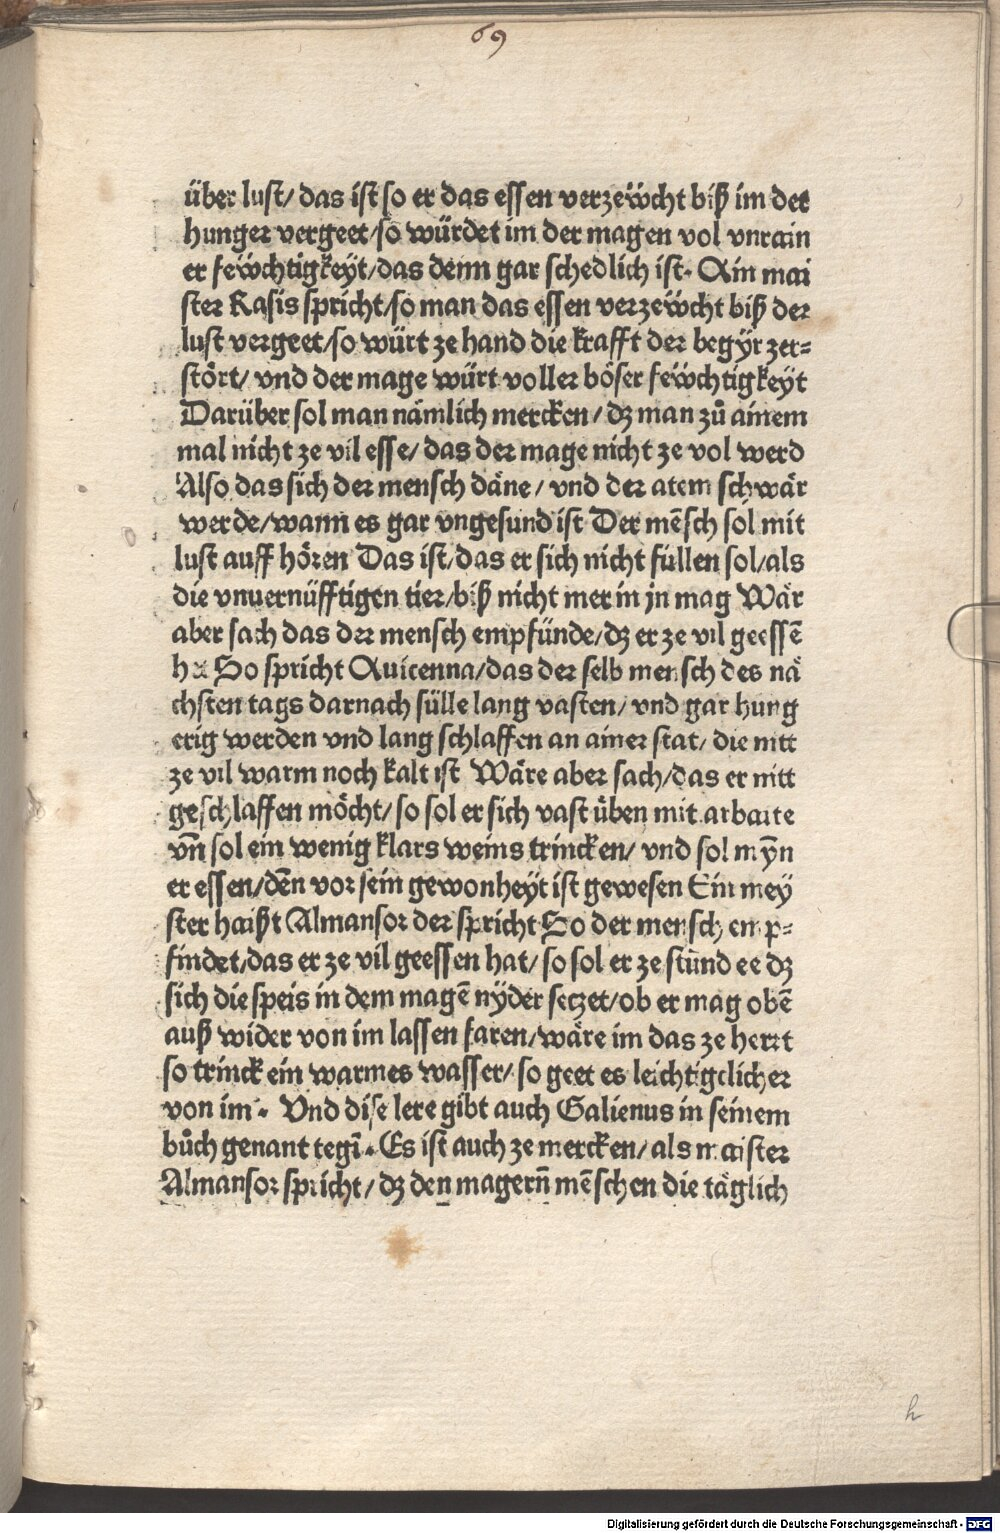 69
über lust/ das ist so er das essen verzeẅcht biß im der
hunger vergeet/so würdet im der magen vol vnrain
er feẅchtigkeyt/das denn gar schedlich ist. Ain mai
ster Rasis spricht/so man das essen verzeẅcht biß der
lust vergeet/so würt ze hand die krafft der begÿr zer=
stört/ vnd der mage würt voller böser feẅchtigkeyt
Darüber sol man nämlich mercken/ dz man zů ainem
mal nicht ze vil esse/ das der mage nicht ze vol werd
Also das sich der mensch däne/ vnd der atem schwär
werde/wann es gar vngesund ist Der mēsch sol mit
lust auff hören Das ist/das er sich nicht füllen sol/als
die vnuernüfftigen tier/biß nicht mer in jn mag Wär
aber sach das der mensch empfünde/dz er ze vil geessē
het So spricht Auicenna/das der selb mensch des nä
chsten tags darnach sülle lang vasten/ vnd gar hung
erig werden vnd lang schlaffen an ainer stat/ die nitt
ze vil warm noch kalt ist Wäre aber sach/das er nitt
geschlaffen möcht/ so sol er sich vast üben mit arbaite
vn̄ sol ein wenig klars weins trincken/ vnd sol myn
er essen/dēn vor sein gewonheÿt ist gewesen Ein meÿ
ster haißt Almansor der spricht So der mensch emp=
findet/das er ze vil geessen hat/ so sol er ze stund ee dz
sich die speis in dem magē nÿder seczet/ob er mag obē
auß wider von im lassen faren/wäre im das ze hertt
so trinck ein warmes wasser/ so geet es leichtigclicher
von im. Vnd dise lere gibt auch Galienus in seinem
bůch genant tegī. Es ist auch ze mercken/ als maister
Almansor spricht/ dz den magern̄ mēschen die täglich
h
Digitalisierung gefördert durch die Deutsche Forschungsgemeinschaft - DFG